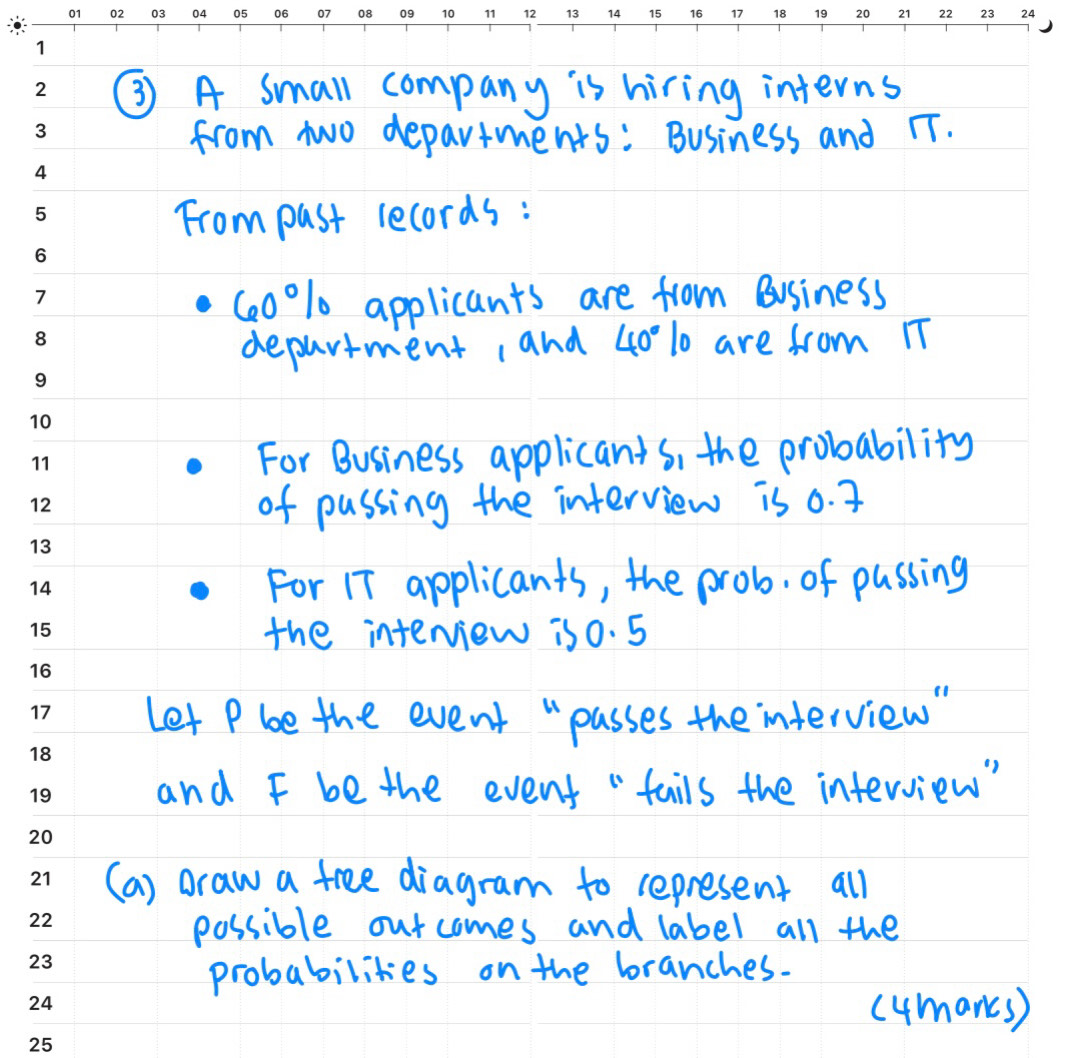 01 02 03 04 05 06 07 08 09 10 11 12 13 14 15 16 17 18 19 20 21 22 23 24
1
2 ③ A small company is hiring interns
3 from two departments: Business and IT.
4
5 From past records:
6
7 • 60% applicants are from Business
8 department, and 40% are from IT
9
10
11 • For Business applicants, the probability
12 of passing the interview is 0.7
13
14 • For IT applicants, the prob. of passing
15 the interview is 0.5
16
17 Let P be the event "passes the interview"
18
19 and F be the event "fails the interview"
20
21 (a) Draw a tree diagram to represent all
22 possible outcomes and label all the
23 probabilities on the branches.
24 (4 marks)
25